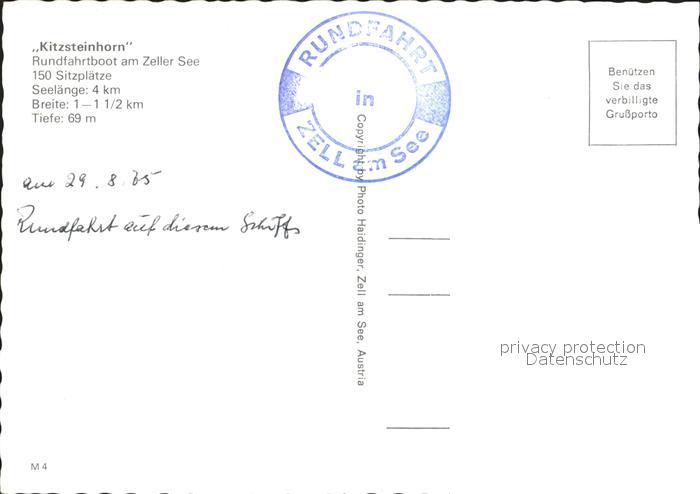 „Kitzsteinhorn"
Rundfahrtboot am Zeller See
150 Sitzplätze
Seelänge: 4 km
Breite: 1—1 1/2 km
Tiefe: 69 m
RUNDFAHRT
in
ZELL am See
Benützen
Sie das
verbilligte
Grußporto
am 29.8.
Rundfahrt auf diesem Schiff
Copyright by Photo Haidinger, Zell am See, Austria
privacy protection
Datenschutz
M 4